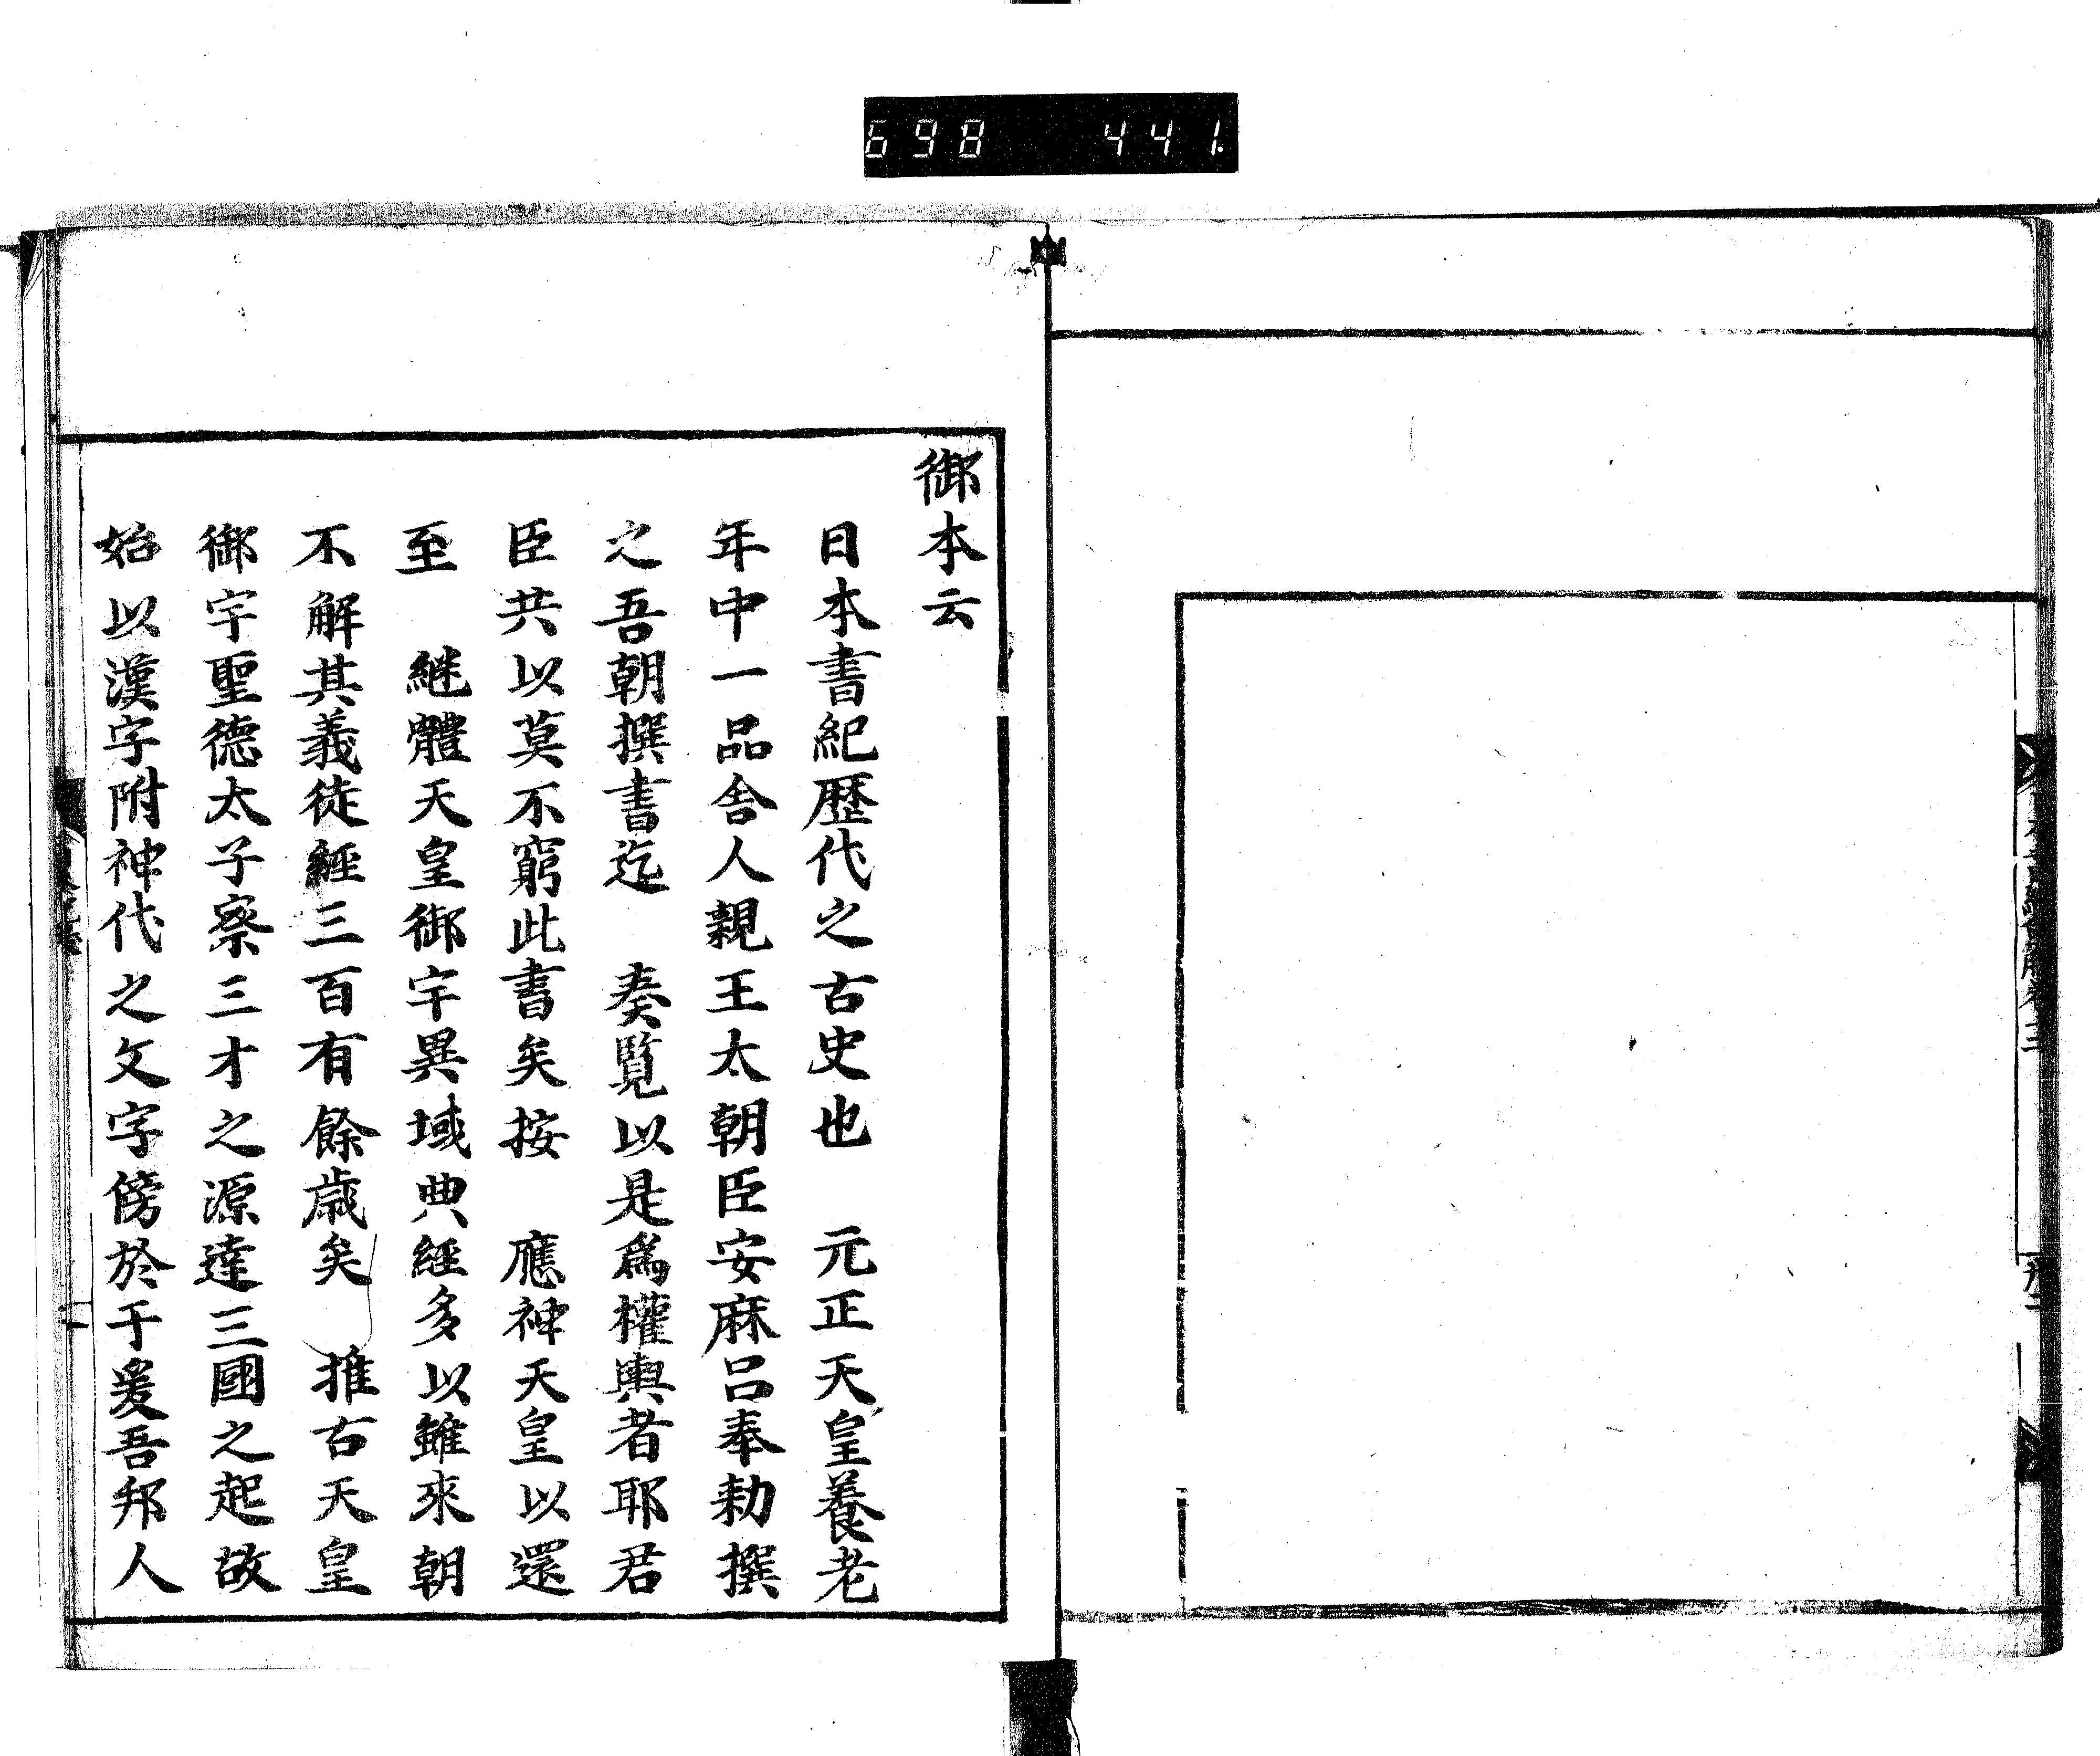 698 441.
御本云
日本書紀歴代之古史也 元正天皇養老
年中一品舎人親王太朝臣安麻呂奉勅撰
之吾朝撰書迄 奏覧以是爲權輿者耶君
臣共以莫不窮此書矣按 應神天皇以還
至 継體天皇御宇異域典經多以雖來朝
不解其義徒經三百有餘歳矣 推古天皇
御宇聖徳太子察三才之源達三國之起故
始以漢字附神代之文字傍於于爰吾邦人